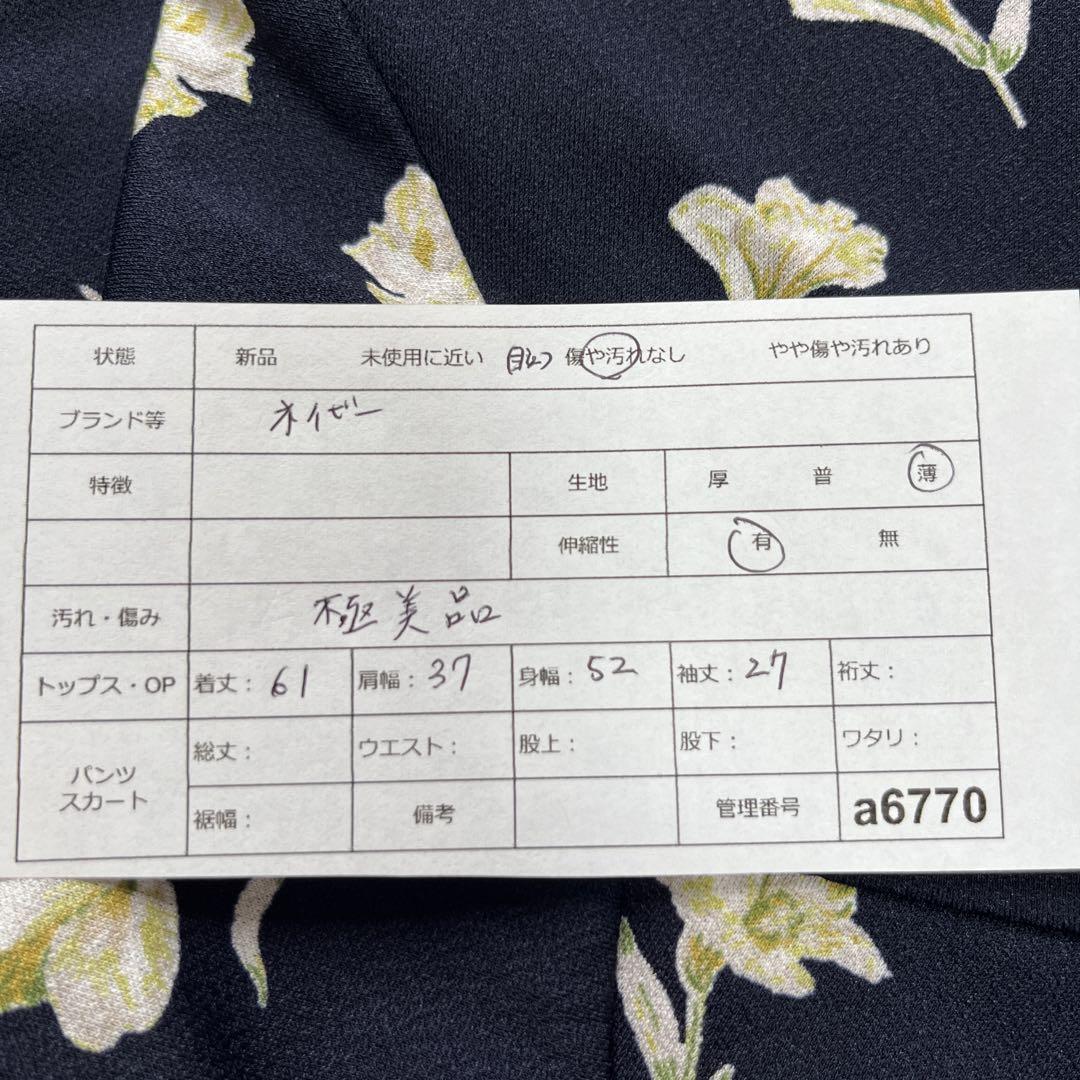 状態 新品 未使用に近い 目立つ 傷や汚れなし やや傷や汚れあり
ブランド等 ネイビー
特徴 生地 厚 普 薄
伸縮性 有 無
汚れ・傷み 極美品
トップス・OP 着丈： 61 肩幅： 37 身幅： 52 袖丈： 27 裄丈：
パンツ スカート 総丈： ウエスト： 股上： 股下： ワタリ：
裾幅： 備考 管理番号 a6770